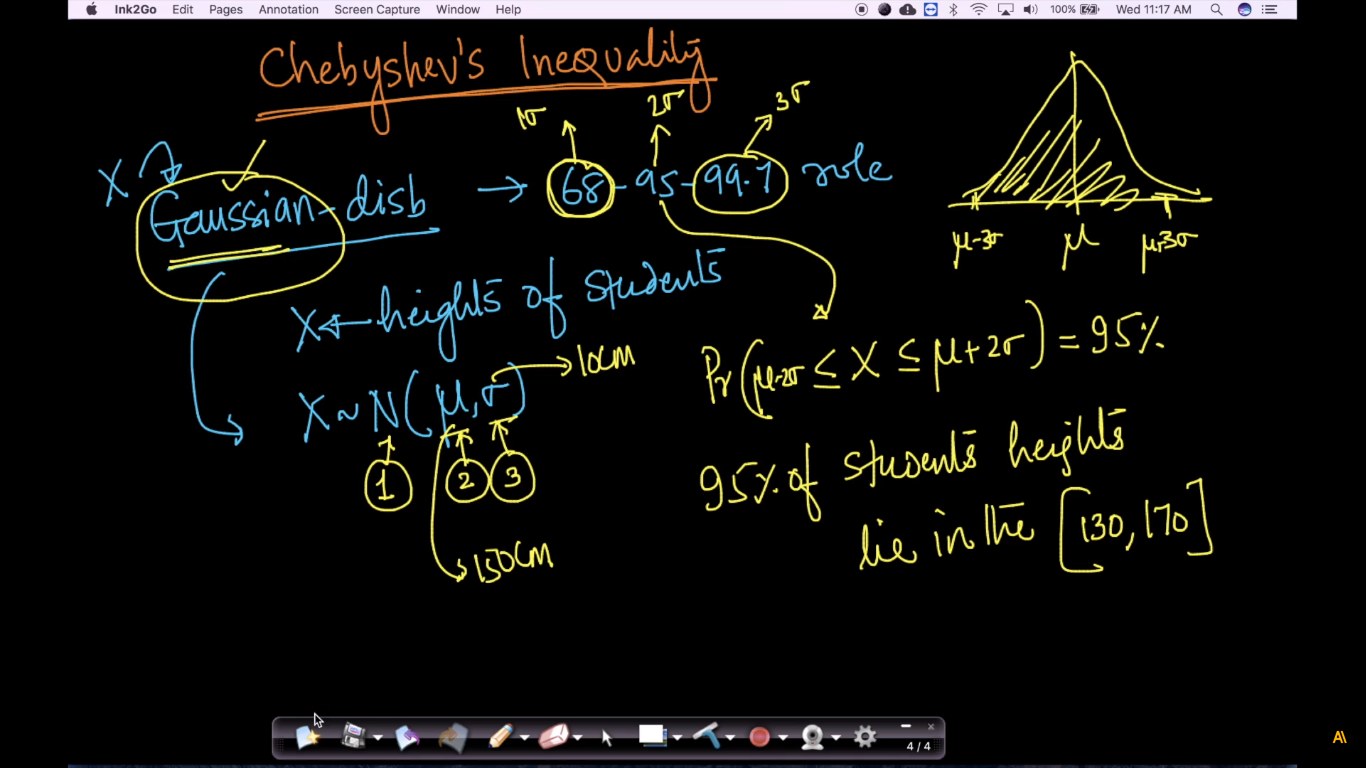 Ink2Go Edit Pages Annotation Screen Capture Window Help 100% Wed 11:17 AM
Chebyshev's Inequality
1σ 2σ 3σ
X
Gaussian-disb → 68-95-99.7 rule
μ-3σ μ μ+3σ
X ← heights of students
Pr(μ-2σ ≤ X ≤ μ+2σ) = 95%
10cm
X ~ N(μ,σ)
1 2 3
95% of students heights
lie in the [130, 170]
150cm
4 / 4